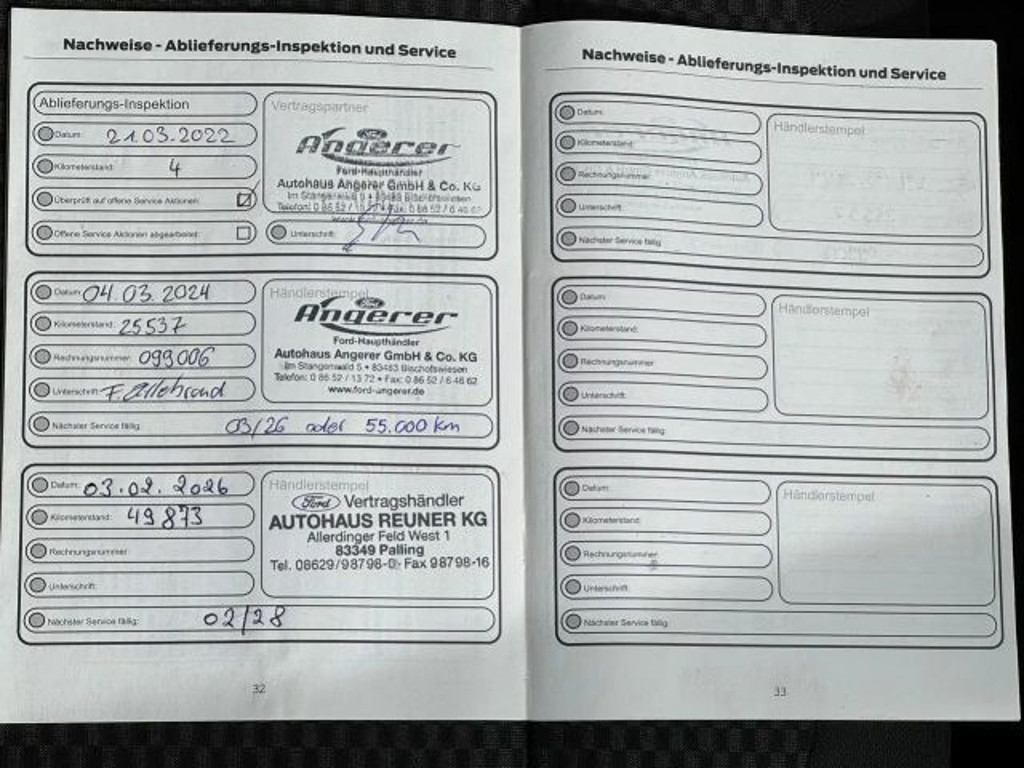 Nachweise - Ablieferungs-Inspektion und Service
Ablieferungs-Inspektion
Datum: 21.03.2022
Kilometerstand: 4
Überprüft auf offene Service Aktionen:
Offene Service Aktionen abgearbeitet:
Vertragspartner
Ford
Angerer
Ford-Haupthändler
Autohaus Angerer GmbH & Co. KG
Im Stangenwald 5 • 83483 Bischofswiesen
Unterschrift:
Datum: 04.03.2024
Kilometerstand: 25537
Rechnungsnummer: 099006
Unterschrift:
Nächster Service fällig: 03/26 oder 55.000 km
Händlerstempel
Ford
Angerer
Ford-Haupthändler
Autohaus Angerer GmbH & Co. KG
Im Stangenwald 5 • 83483 Bischofswiesen
Telefon: 0 86 52 / 13 72 • Fax: 0 86 52 / 6 46 62
www.ford-angerer.de
Datum: 03.02.2026
Kilometerstand: 49873
Rechnungsnummer:
Unterschrift:
Nächster Service fällig: 02/28
Händlerstempel
Ford Vertragshändler
AUTOHAUS REUNER KG
Allerdinger Feld West 1
83349 Palling
Tel. 08629/98798-0 · Fax 98798-16
32
Nachweise - Ablieferungs-Inspektion und Service
Datum:
Kilometerstand:
Rechnungsnummer:
Unterschrift:
Nächster Service fällig:
Händlerstempel
Datum:
Kilometerstand:
Rechnungsnummer:
Unterschrift:
Nächster Service fällig:
Händlerstempel
Datum:
Kilometerstand:
Rechnungsnummer:
Unterschrift:
Nächster Service fällig:
Händlerstempel
33